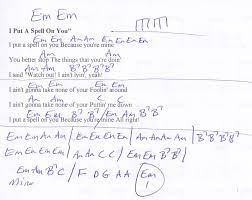 Em Em
I Put A Spell On You"
Em Em Am Am Em Em Em Em
I put a spell on you Because you're mine
Am Am
You better stop The things that you're doin'
Am Am B7 B7 B7 B7
I said "Watch out! I ain't lyin', yeah!
Em Em Am Am
I ain't gonna take none of your Foolin' around
Am Am C C
I ain't gonna take none of your Puttin' me down
Em Em B7 B7 / Em Am B7 B7
I put a spell on you Because you're mine All right!
Em Em Am Am / Em Em Em Em / Am Am Am Am / B7 B7 B7 B7
Em Em Em Em / Am Am C C / Em Em B7 B7 /
Em Am B7 C / F D G A A / Em
Minor 1